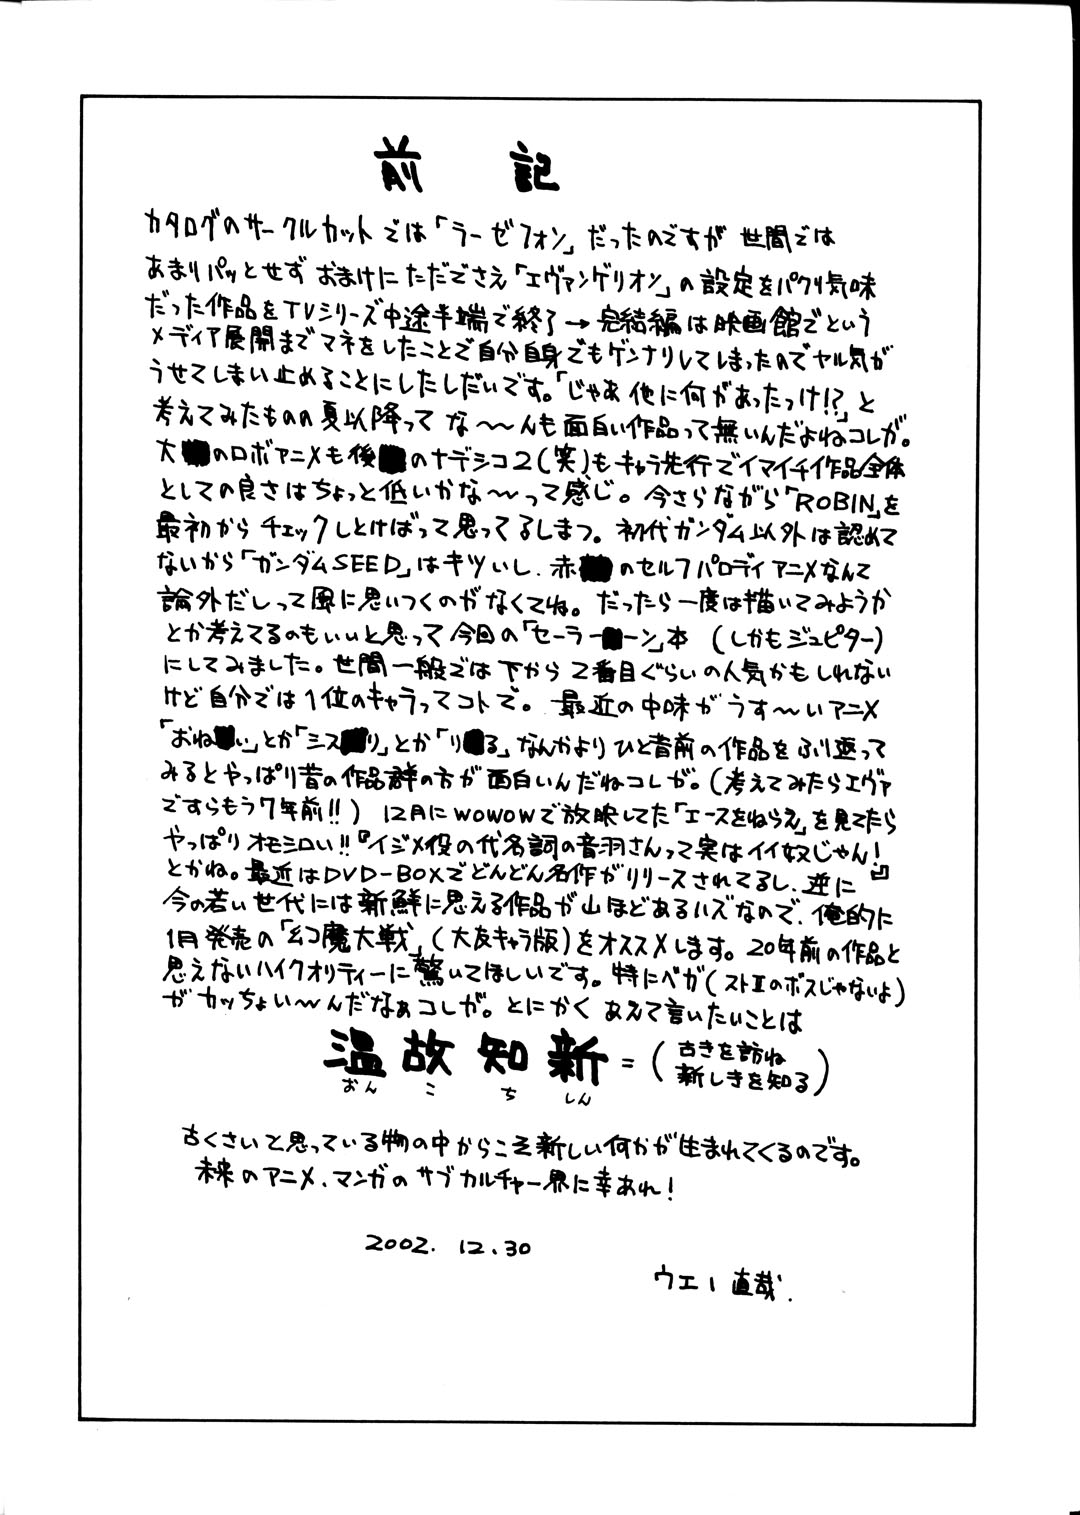 前記
カタログのサークルカットでは「ラーゼフォン」だったのですが世間では
あまりパッとせずおまけにただでさえ「エヴァンゲリオン」の設定をパクリ気味
だった作品をTVシリーズ中途半端で終了→完結編は映画館でという
メディア展開までマネをしたことで自分自身でもゲンナリしてしまったのでヤル気が
うせてしまい止めることにしたしだいです。「じゃあ他に何があったっけ!?」と
考えてみたものの夏以降ってな〜〜んも面白い作品って無いんだよねコレが。
大■のロボアニメも後■のナデシコ2(笑)もキャラ先行でイマイチ作品全体
としての良さはちょっと低いかな〜〜って感じ。今さらながら「ROBIN」を
最初からチェックしとけばって思ってるしまつ。初代ガンダム以外は認めて
ないから「ガンダムSEED」はキツいし、赤■のセルフパロディアニメなんて
論外だしって風に思いつくのがなくてね。だったら一度は描いてみようか
とか考えてるのもいいと思って今回の「セーラー■ーン」本(しかもジュピター)
にしてみました。世間一般では下から2番目ぐらいの人気かもしれない
けど自分では1位のキャラってコトで。最近の中味がうす〜いアニメ
「おね■い」とか「シス■リ」とか「り■る」なんかよりひと昔前の作品をふり返って
みるとやっぱり昔の作品群の方が面白いんだねコレが。(考えてみたらエヴァ
ですらもう7年前!!)12月にWOWOWで放映してた「エースをねらえ」を見てたら
やっぱりオモシロい!!『イジメ役の代名詞の音羽さんって実はイイ奴じゃん!』
とかね。最近はDVD-BOXでどんどん名作がリリースされてるし、逆に
今の若い世代には新鮮に思える作品が山ほどあるハズなので、俺的に
1月発売の「幻魔大戦」(大友キャラ版)をオススメします。20年前の作品と
思えないハイクオリティーに驚いてほしいです。特にベガ(ストⅡのボスじゃないよ)
がカッちょい〜〜んだなぁコレが。とにかくあえて言いたいことは
温故知新=(古きを訪ね新しきを知る)
おんこちしん
古くさいと思っている物の中からこそ新しい何かが生まれてくるのです。
未来のアニメ、マンガのサブカルチャー界に幸あれ!
2002.12.30
ウエー直哉.